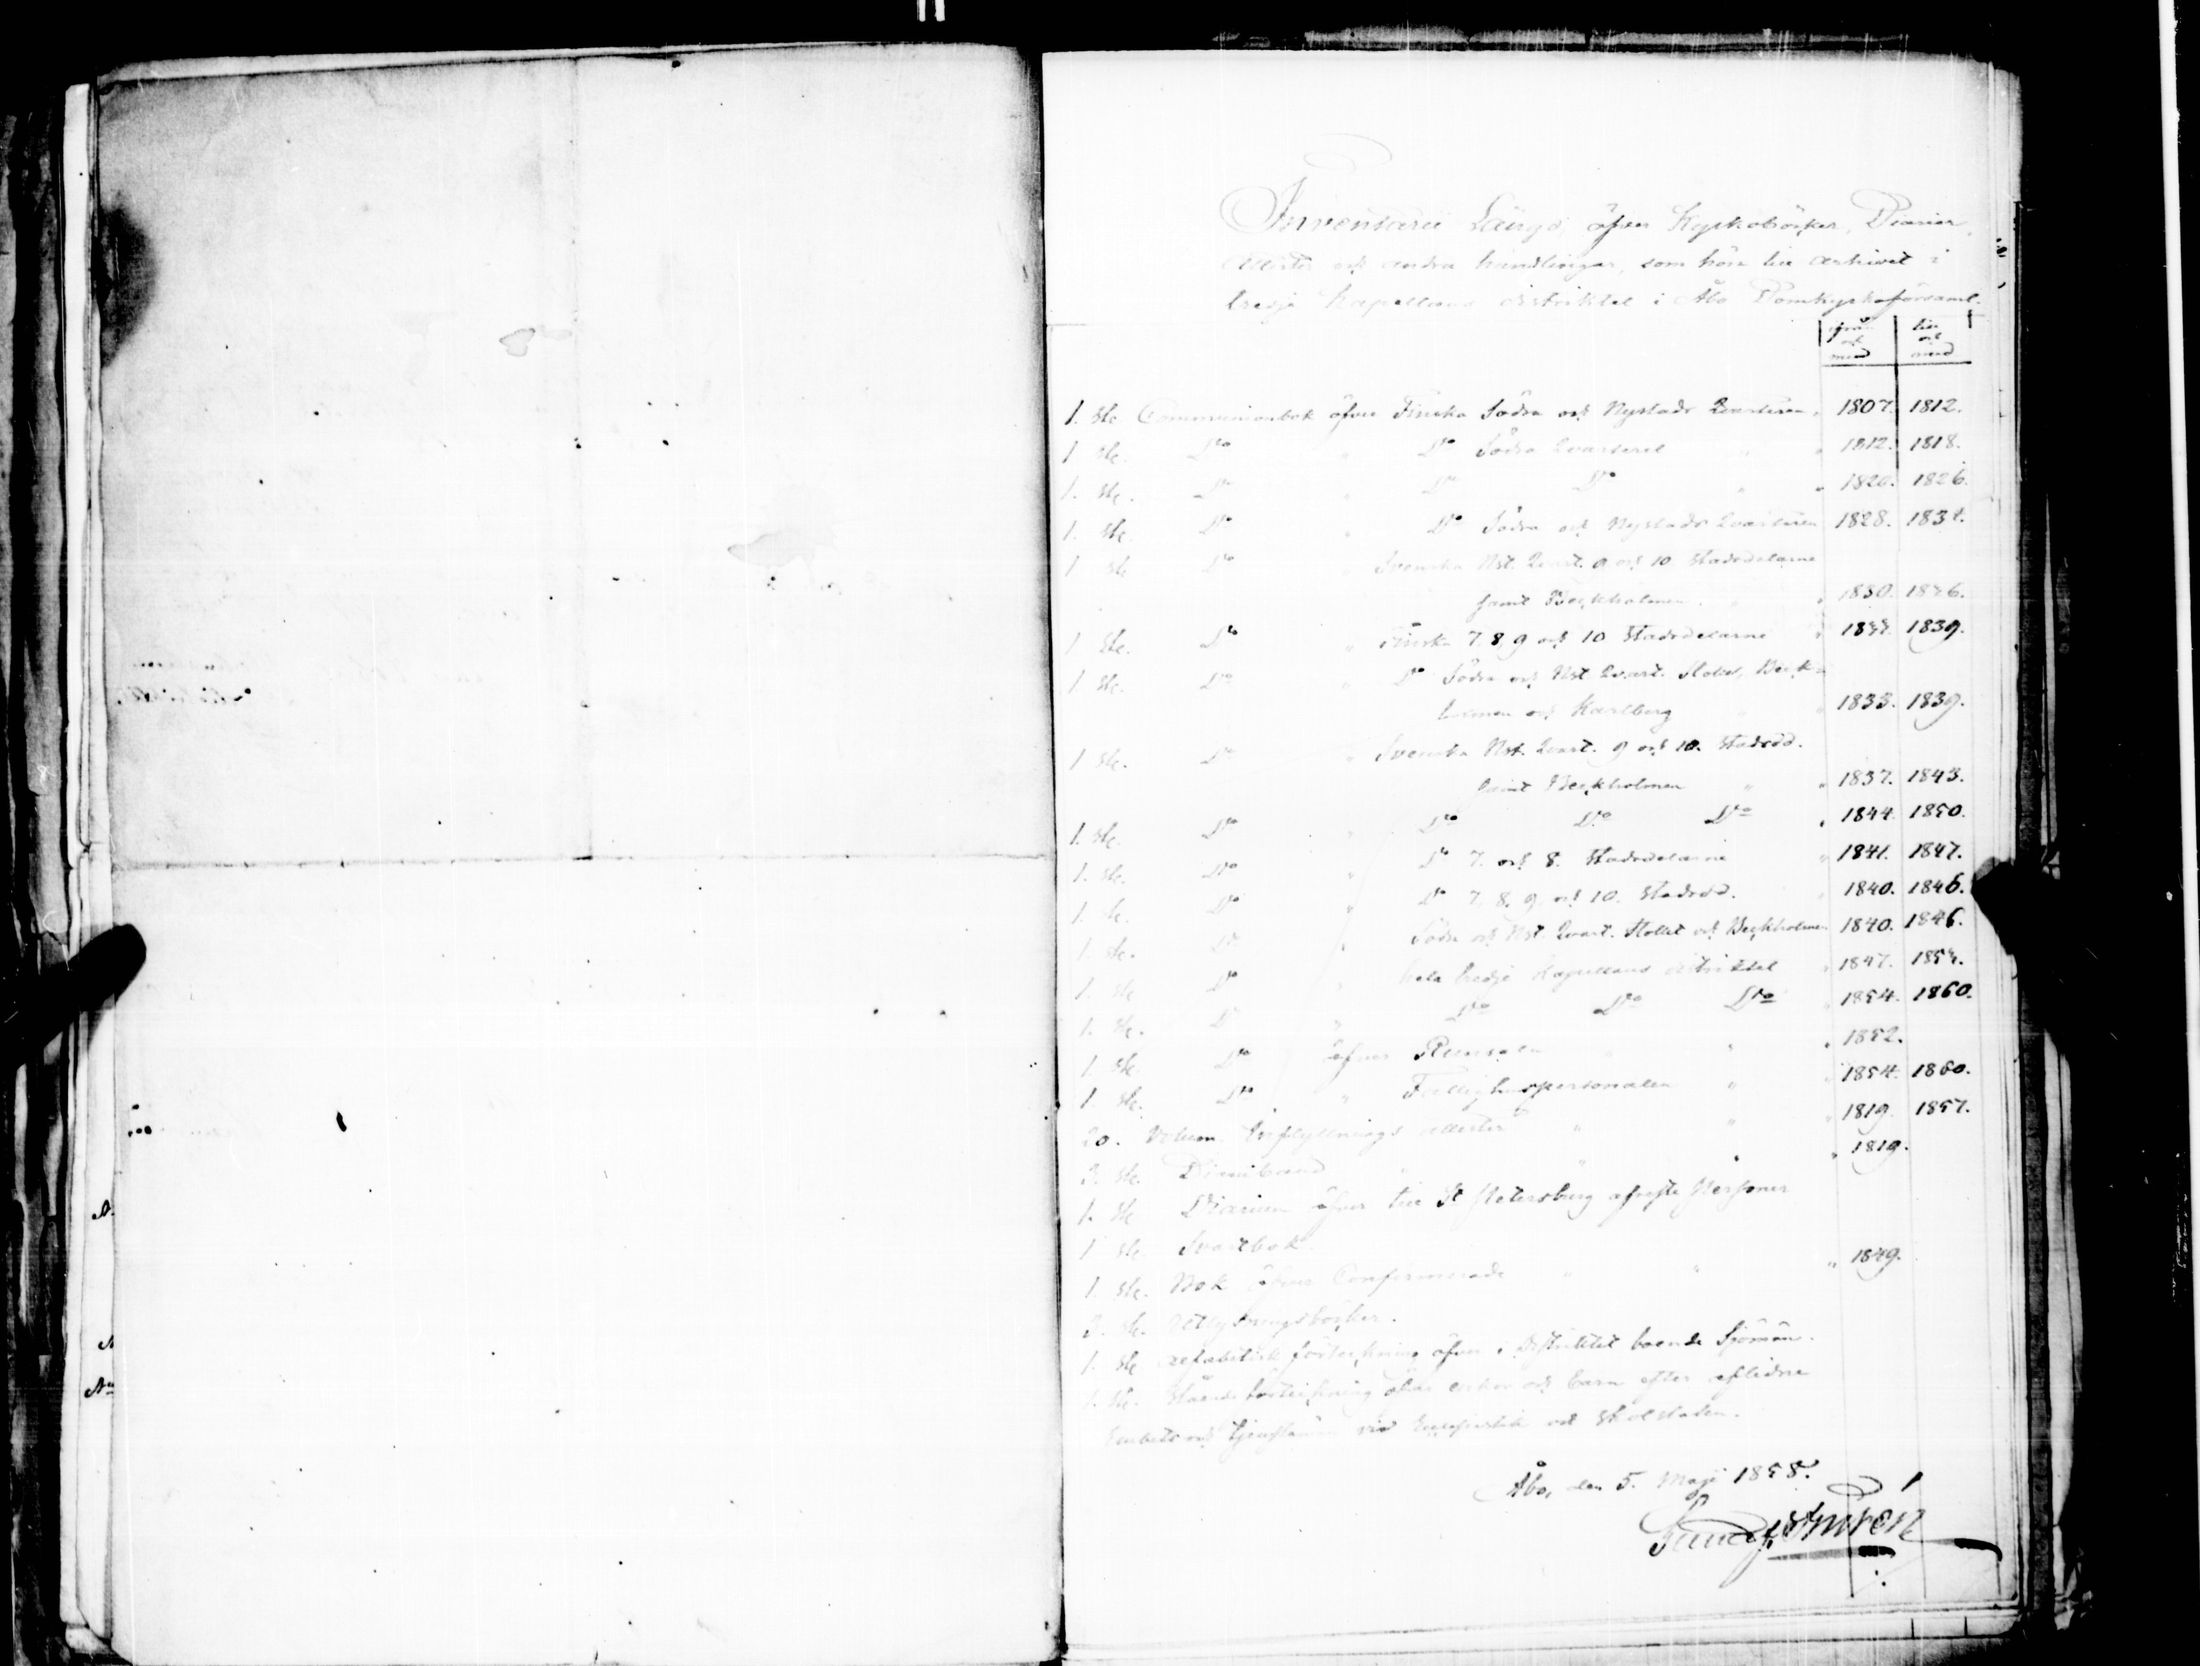 Inventarii Längd öfver Kyrkoböcker, Diarier,
Attester och andra handlingar, som höra till Arkivet i
tredje Kapellans distriktet i Åbo Domkyrkoförsaml.
ifrån och med
till och med
1. St. Communionbok öfver Finska Södra och Nystads Qvarteren " 1807. 1812.
1 St. Do " Do Södra Qvarteret " " 1812. 1818.
1. St. Do " Do Do " " 1820. 1826.
1. St. Do " Do Södra och Nystads Qvarteren 1828. 1834.
1 St Do " Svenska Nst. Qvart. 9 och 10 Stadsdelarne
samt Beckholmen " " 1830. 1836.
1 St. Do " Finska 7, 8, 9 och 10 Stadsdelarne " 1839.
1 St. Do " Do Södra och Nst Qvart. Slottet, Beck-
holmen och Karlberg " " 1833. 1839.
1 St. Do " Svenska Nst. Qvart. 9 och 10. Stadsd.
samt Beckholmen " " 1837. 1843.
1. St. Do " Do Do Do " 1844. 1850.
1. St. Do " Do 7. och 8. Stadsdelarne " 1841. 1847.
1. St. Do " Do 7, 8, 9, och 10. Stadsd. " 1840. 1846.
1. St. Do " Södra och Nst Qvart. Slottet och Beckholmen 1840. 1846.
1. St Do " hela tredje Kapellans distriktet " 1847. 1854.
1. St. Do " Do Do Do " 1854. 1860.
1 St. Do öfver Runsala " " " 1852.
1. St. Do " Fattighuspersonalen " " 1854. 1860.
20. Volum. Inflyttnings attester " " " 1819. 1857.
3. St. Dimiband " " " " 1819.
1. St Diarium öfver till St Petersburg afreste Personer
1 St. Svartbok.
1. St. Bok öfver Confirmerade " " " 1849.
3. St. Utlysningsböcker.
1. St Alfabetisk förteckning öfver i Distriktet boende Sjömän.
1. St. Stående förteckning öfver enkor och barn efter aflidne
Embets och tjenstemän vid Ecclesiastik och Skolstaten.
Åbo, den 5. Maji 1858.